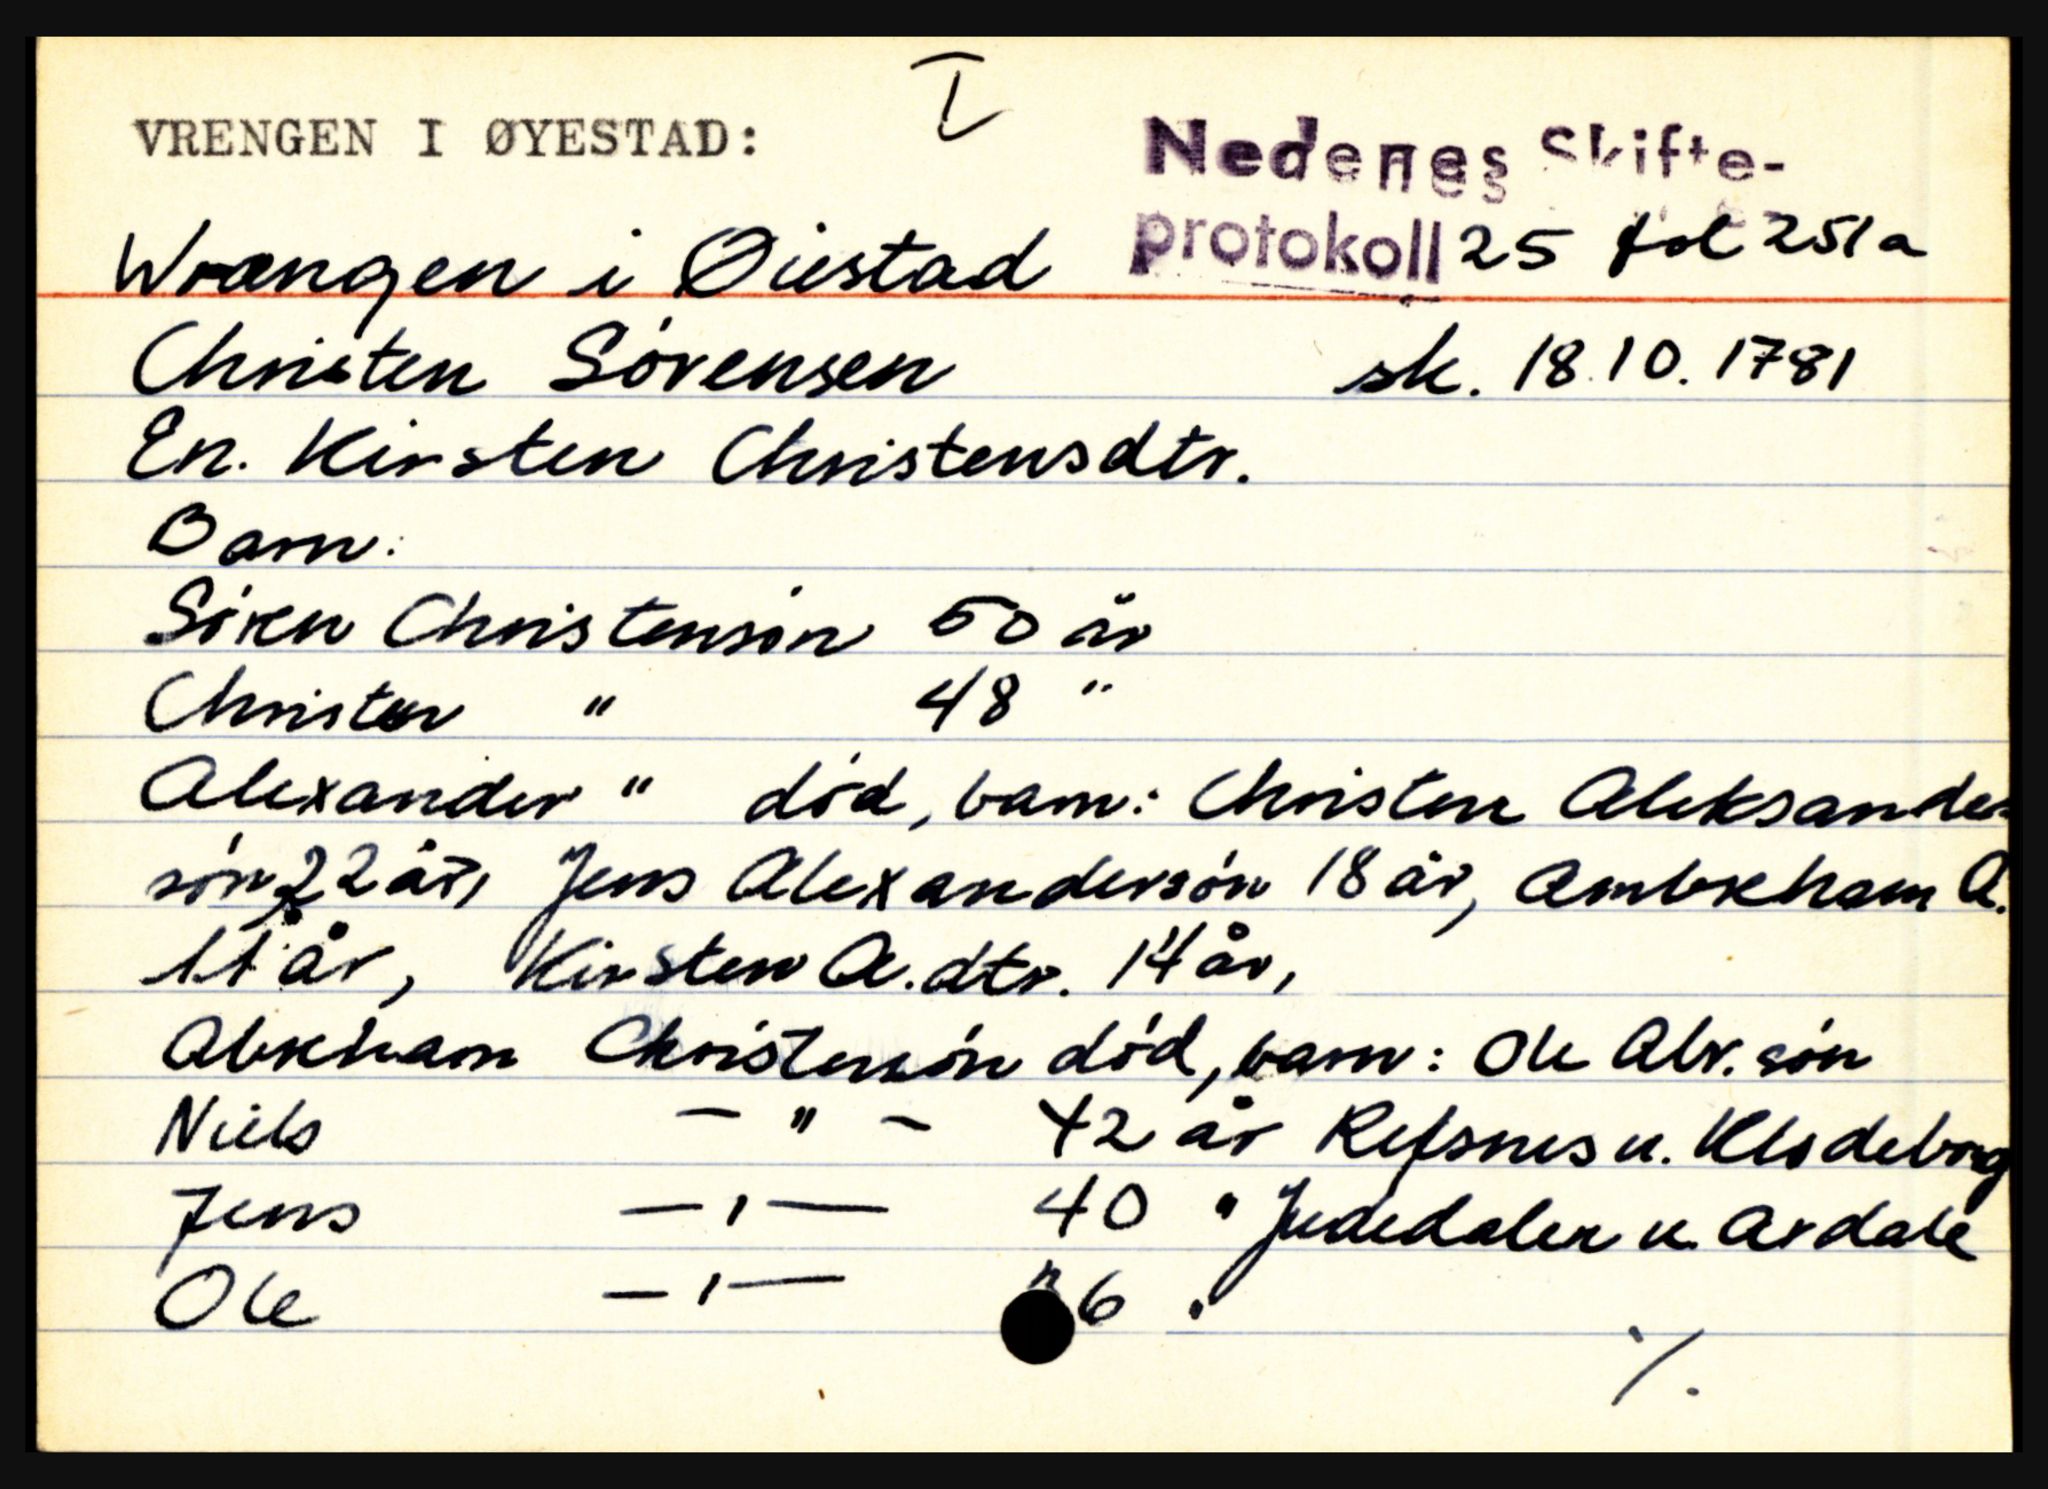 I
VRENGEN I ØYESTAD:
Nedenes Skifte-
protokoll 25 fol 251a
Wrængen i Øiestad
Christen Sørensen sk. 18.10.1781
En. Kirsten Christensdtr.
Barn:
Søren Christensøn 50 år
Christen " 48 "
Alexander " død, barn: Christen Aleksander-
søn 22 år, Jens Alexandersøn 18 år, Ambreham A.
11 år, Kirsten A.dtr. 14 år,
Abreham Christensøn død, barn: Ole Abr.søn
Niels - " - 42 år Refsnes u. Klodeborg
Jens - " - 40 " u. Ardale
Ole - " - 6 "
./.